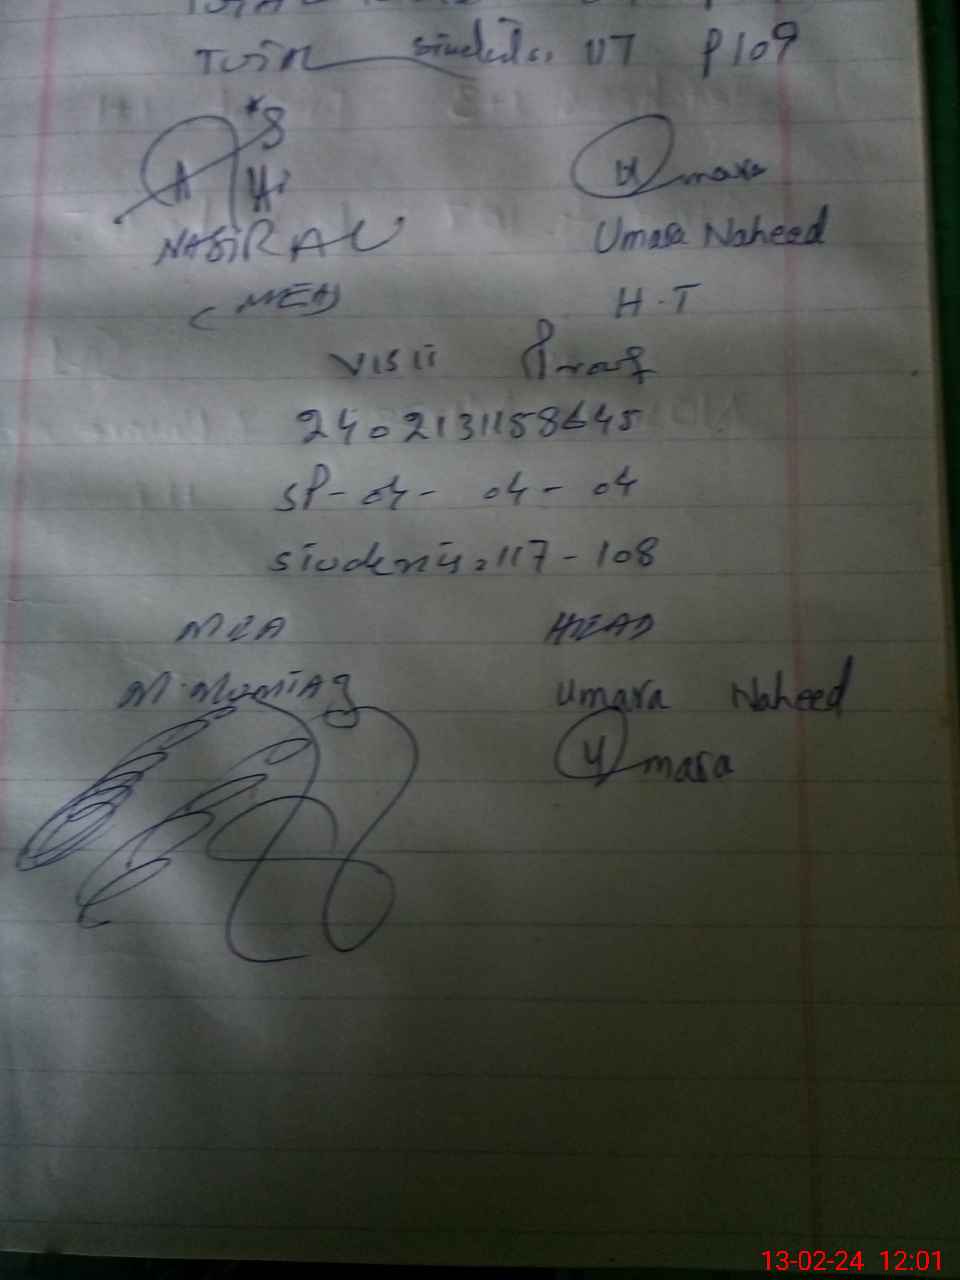 Total Students, 117 P109
Umara
NASIR ALI Umara Naheed
(MEA) H.T
Visit Proof
2402131158645
SP-04-04-04
Students, 117-108
MEA HEAD
M. Mumtaz Umara Naheed
Umara
13-02-24 12:01